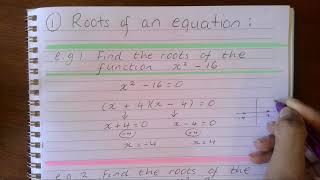 ① Roots of an equation:
e.g 1 Find the roots of the
function x² - 16
x² - 16 = 0
(x + 4)(x - 4) = 0
x + 4 = 0 x - 4 = 0
x = -4 x = 4
e.g 2 Find the roots of the